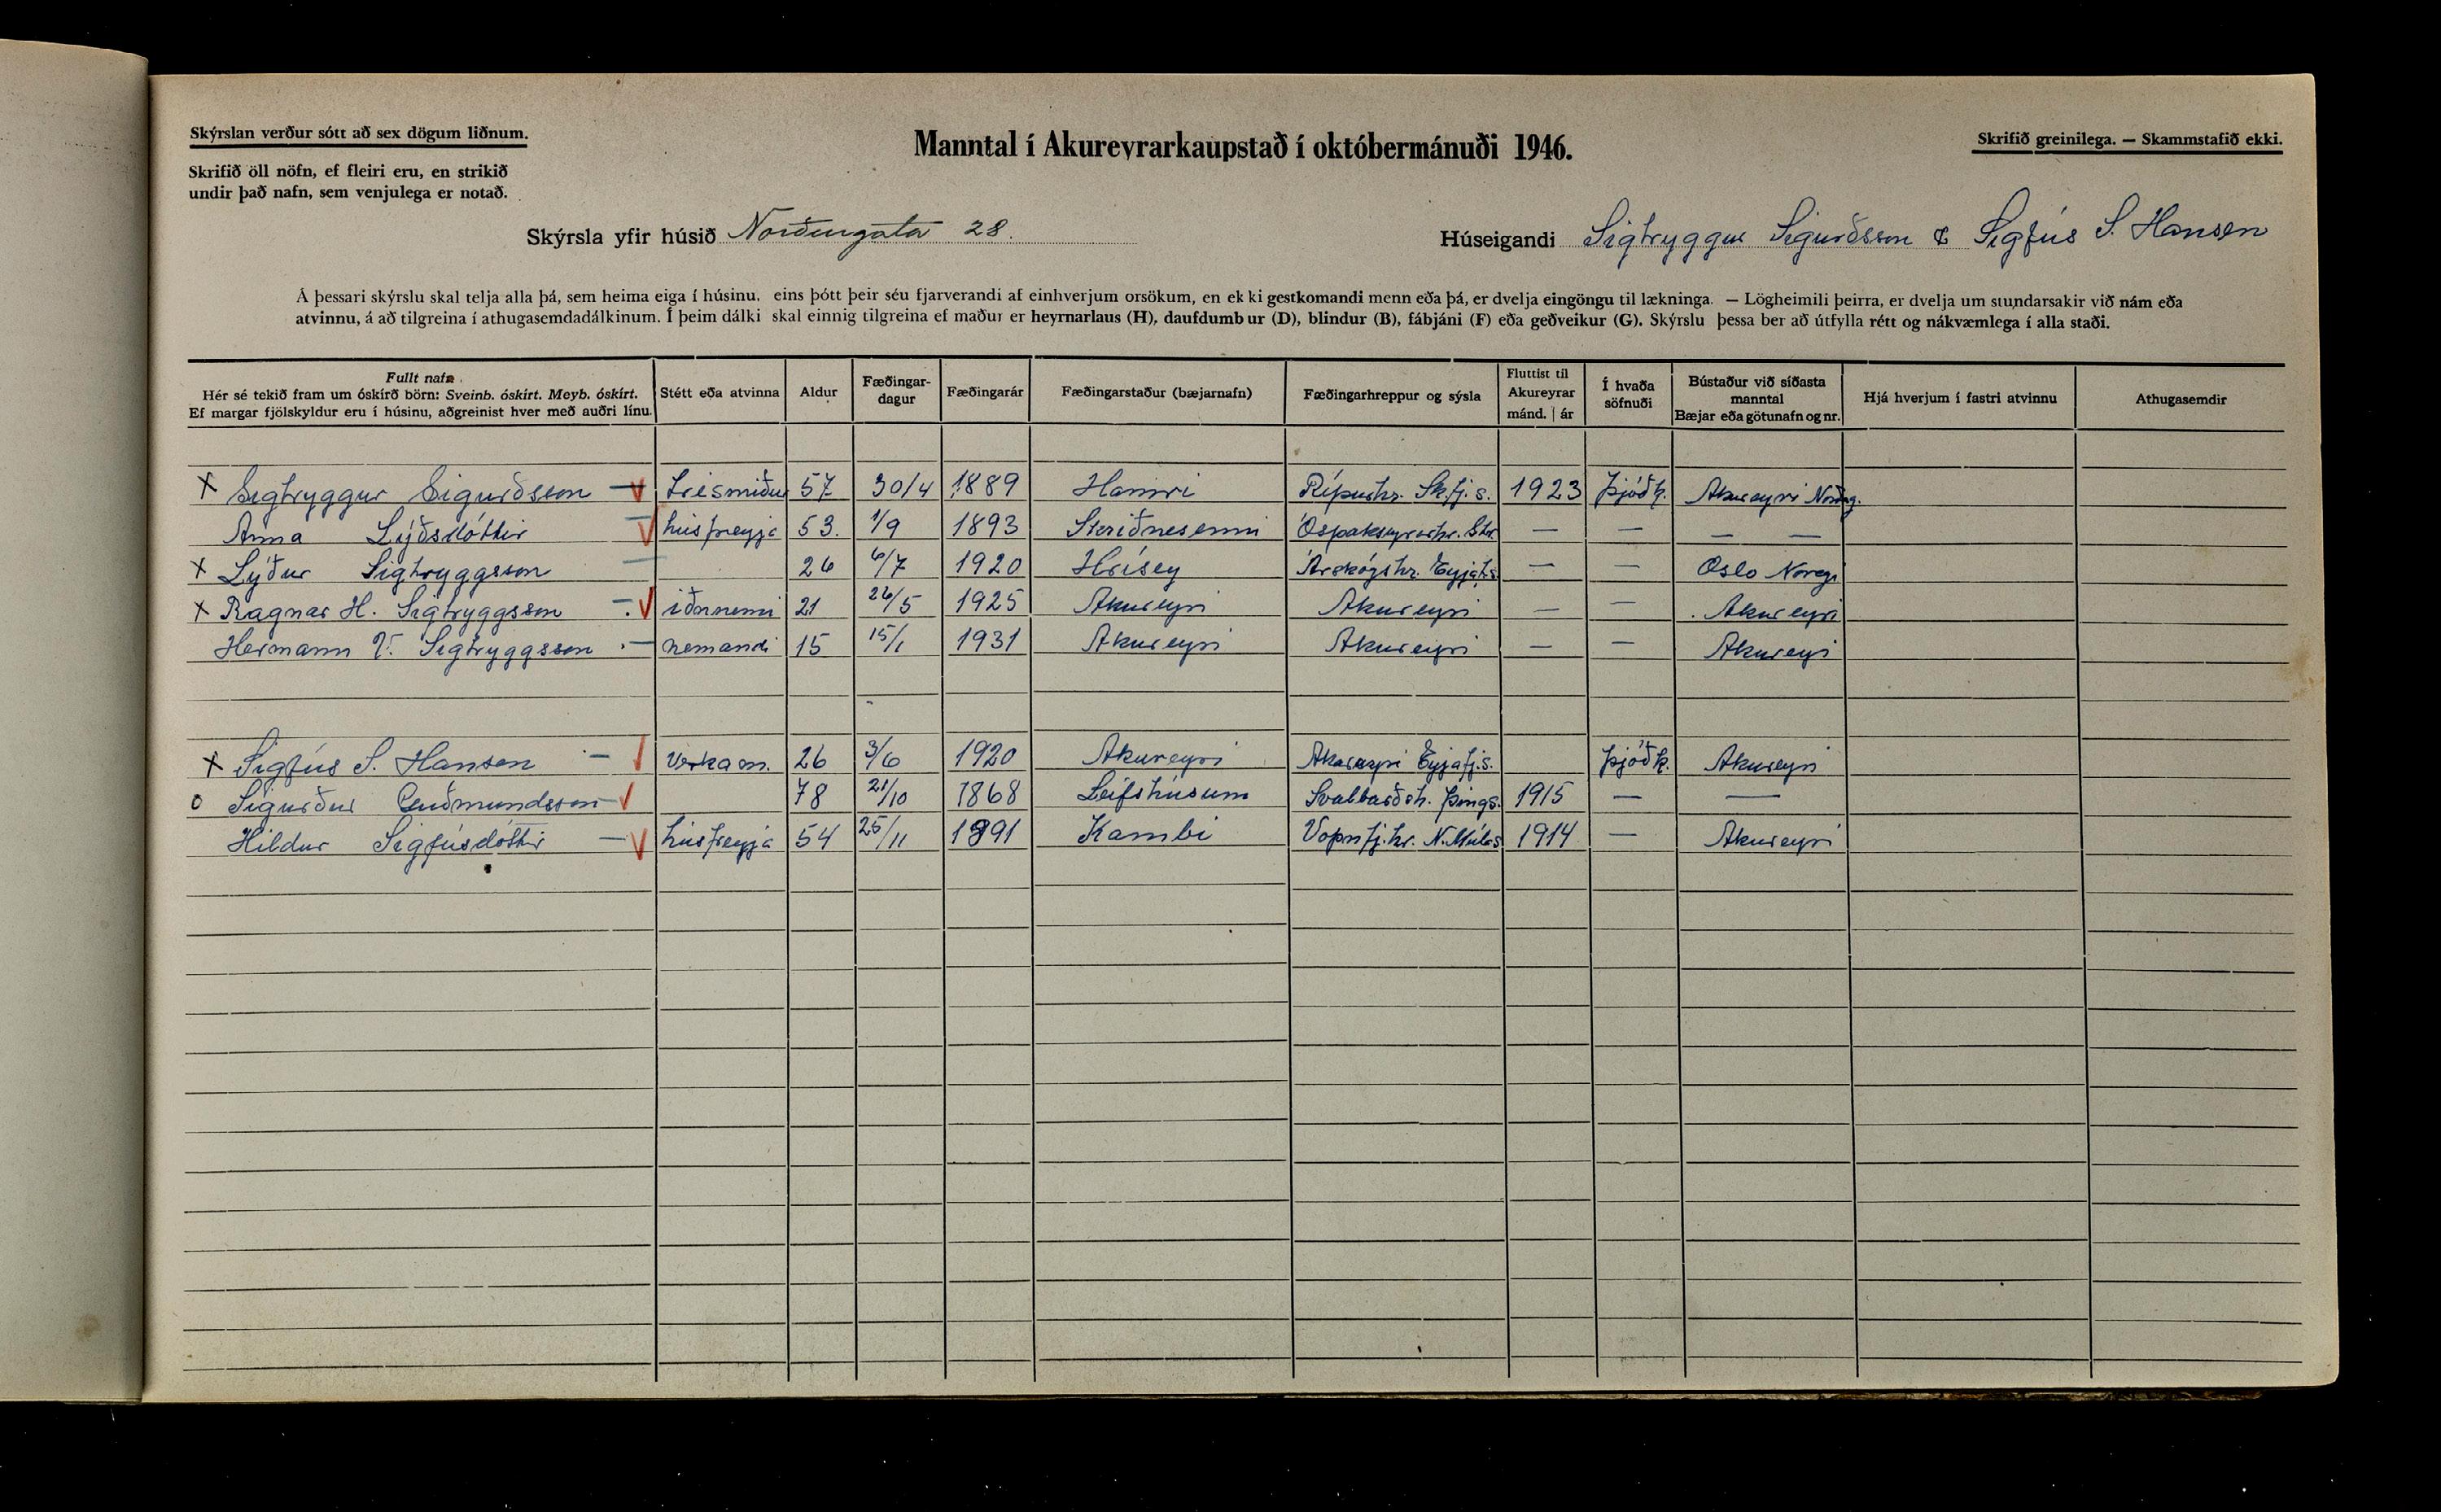 Skýrslan verður sótt að sex dögum liðnum.
Manntal í Akureyrarkaupstað í októbermánuði 1946.
Skrifið greinilega. — Skammstafið ekki.
Skrifið öll nöfn, ef fleiri eru, en strikið
undir það nafn, sem venjulega er notað.
Skýrsla yfir húsið Norðurgata 28.
Húseigandi Sigtryggur Sigurðsson & Sigfús S. Hansen
Á þessari skýrslu skal telja alla þá, sem heima eiga í húsinu, eins þótt þeir séu fjarverandi af einhverjum orsökum, en ekki gestkomandi menn eða þá, er dvelja eingöngu til lækninga. — Lögheimili þeirra, er dvelja um stundarsakir við nám eða
atvinnu, á að tilgreina í athugasemdadálkinum. Í þeim dálki skal einnig tilgreina ef maður er heyrnarlaus (H), daufdumbur (D), blindur (B), fábjáni (F) eða geðveikur (G). Skýrslu þessa ber að útfylla rétt og nákvæmlega í alla staði.
Fullt nafn.
Hér sé tekið fram um óskírð börn: Sveinb. óskírt. Meyb. óskírt.
Ef margar fjölskyldur eru í húsinu, aðgreinist hver með auðri línu.
Stétt eða atvinna
Aldur
Fæðingar-
dagur
Fæðingarár
Fæðingarstaður (bæjarnafn)
Fæðingarhreppur og sýsla
Fluttist til
Akureyrar
mánd. | ár
Í hvaða
söfnuði
Bústaður við síðasta
manntal
Bæjar eða götunafn og nr.
Hjá hverjum í fastri atvinnu
Athugasemdir
x Sigtryggur Sigurðsson — v Trésmiður 57 30/4 1889 Hamri Rípurhr. Sk.fj.s. 1923 Þjóðk. Akureyri Norðg.
Anna Lýðsdóttir — v húsfreyja 53. 1/9 1893 Skriðnesenni Óspakseyrarhr. Str. — — — —
x Lýður Sigtryggsson — 26 6/7 1920 Hrísey Árskógshr. Eyjafs. — — Oslo Noregi
x Ragnar H. Sigtryggsson — v iðnnemi 21 26/5 1925 Akureyri Akureyri — — Akureyri
Hermann V. Sigtryggsson — nemandi 15 15/1 1931 Akureyri Akureyri — — Akureyri
x Sigfús S. Hansen — v Verkam. 26 3/6 1920 Akureyri Akureyri Eyjafj.s. Þjóðk. Akureyri
o Sigurður Guðmundsson — v 78 21/10 1868 Leifshúsum Svalbarðsh. Þings. 1915 — —
Hildur Sigfúsdóttir — v húsfreyja 54 25/11 1891 Kambi Vopnfj.hr. N.Múlas 1914 — Akureyri